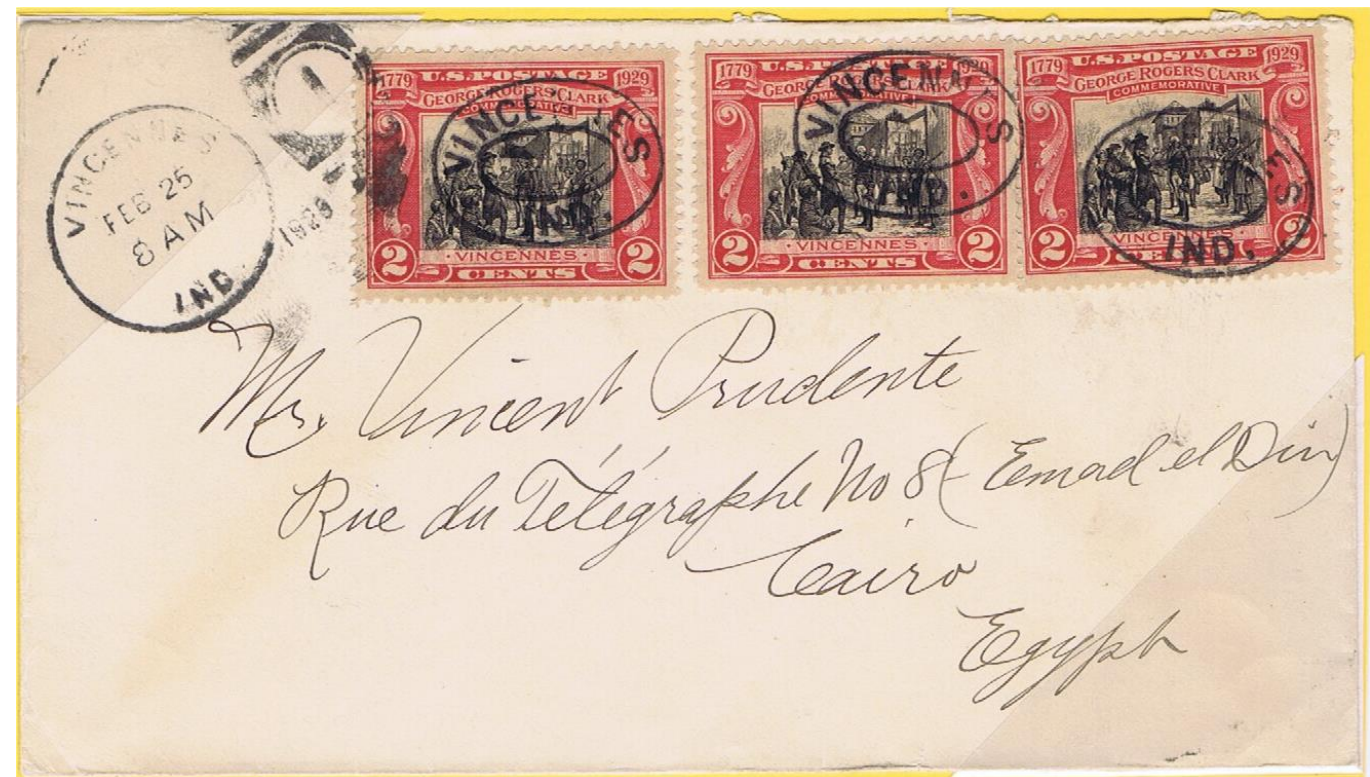 VINCENNES
FEB 25
8 AM
IND.
1929
1
1779 U.S. POSTAGE 1929
GEORGE ROGERS CLARK
COMMEMORATIVE
· VINCENNES ·
2 CENTS 2
VINCENNES
IND.
1779 U.S. POSTAGE 1929
GEORGE ROGERS CLARK
COMMEMORATIVE
· VINCENNES ·
2 CENTS 2
VINCENNES
IND.
1779 U.S. POSTAGE 1929
GEORGE ROGERS CLARK
COMMEMORATIVE
VINCENNES
2 CENTS 2
ES
IND.
Mr. Vincent Prudente
Rue du Télégraphe No 8 (Eemad el Din)
Cairo
Egypt